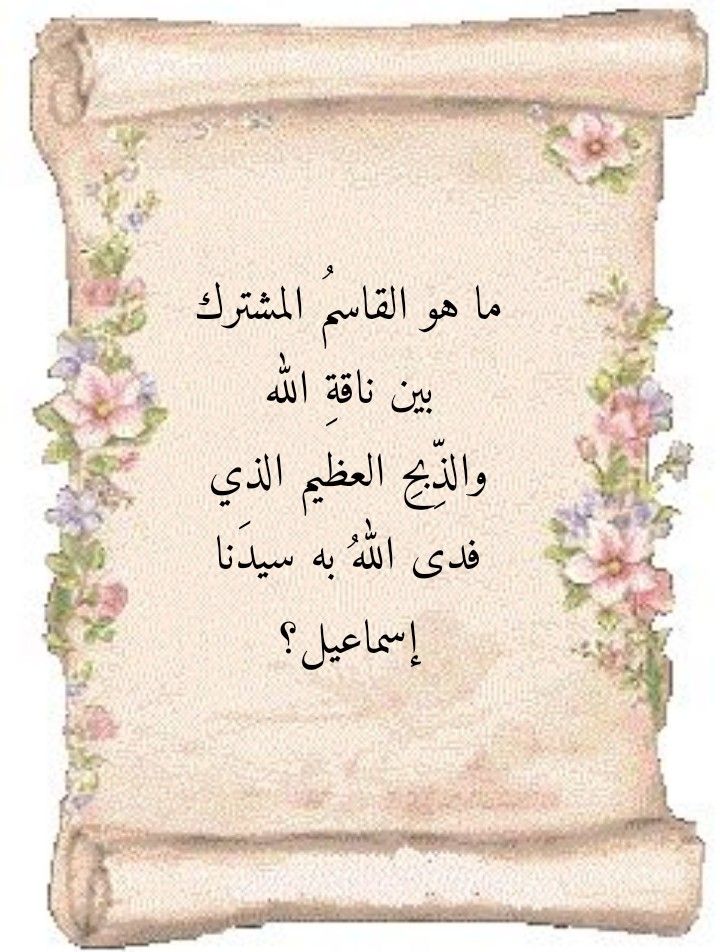 ما هو القاسمُ المشترك
بين ناقةِ الله
والذِّبحِ العظيم الذي
فدى اللهُ به سيدَنا
إسماعيل؟